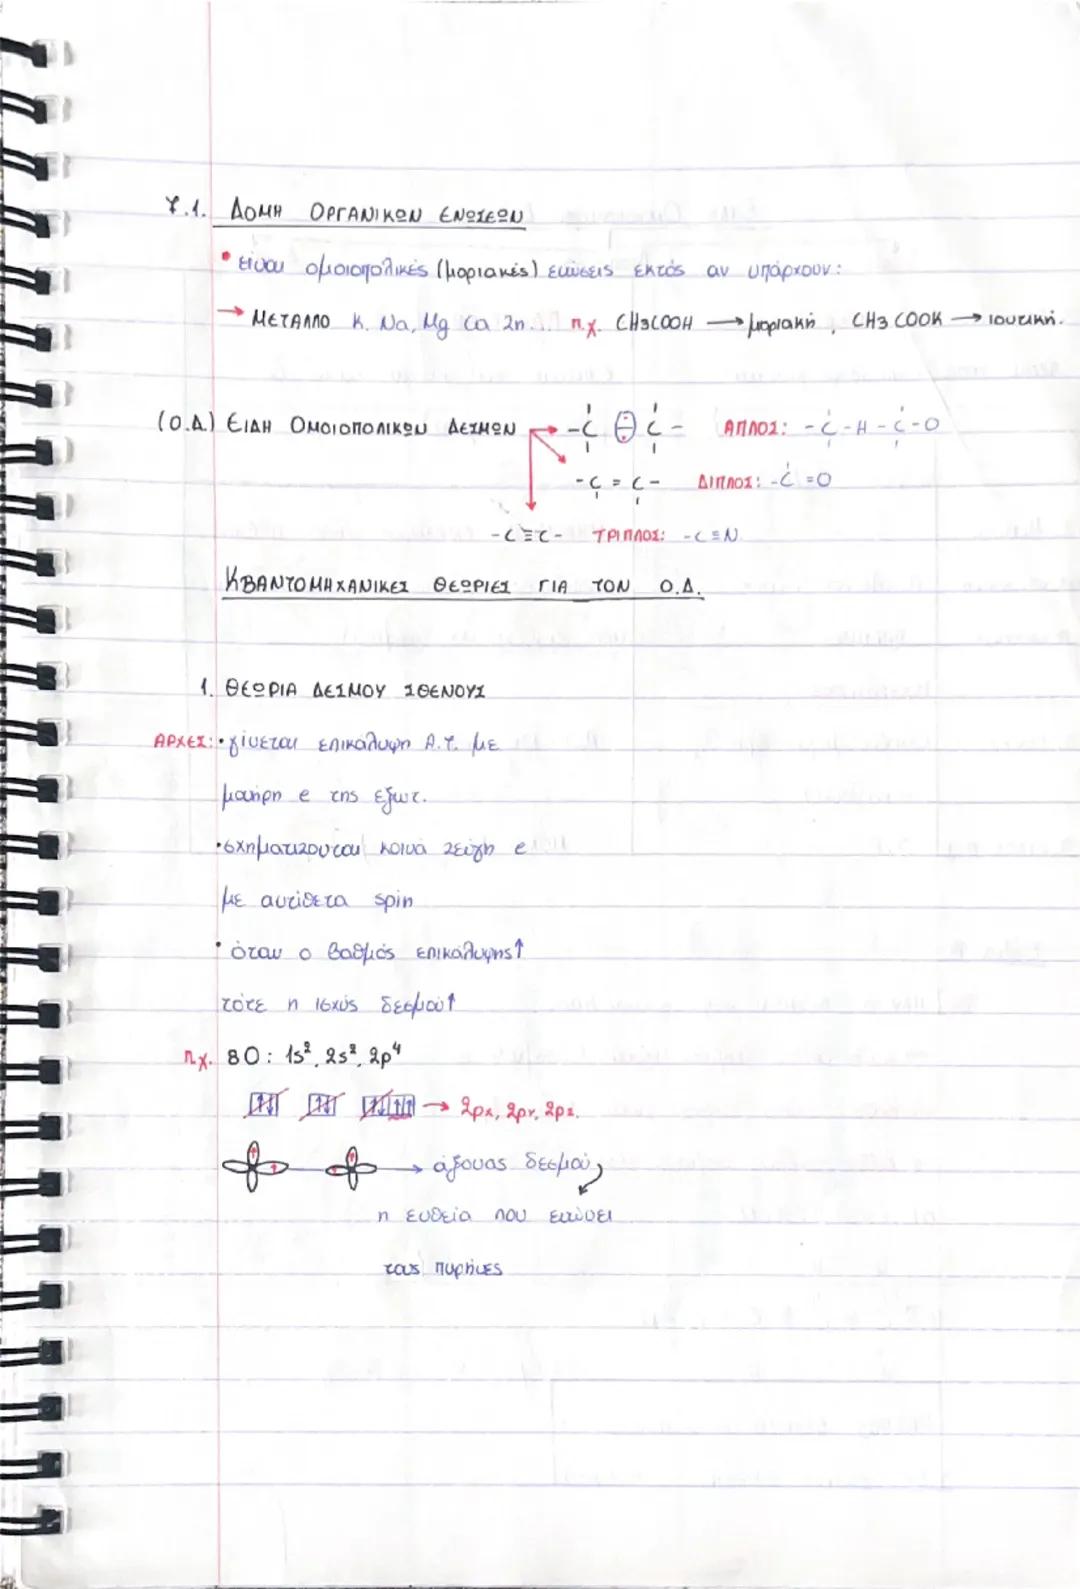 7.1. ΔΟΜΗ ΟΡΓΑΝΙΚΩΝ ΕΝΩΣΕΩΝ
• είναι ομοιοπολικές (μοριακές) ενώσεις εκτός αν υπάρχουν:
→ ΜΕΤΑΛΛΟ K, Na, Mg Ca Zn... π.χ. CH3COOH → μοριακή, CH3COOK → ιοντική.
(Ο.Δ.) ΕΙΔΗ ΟΜΟΙΟΠΟΛΙΚΩΝ ΔΕΣΜΩΝ → -C C- ΑΠΛΟΣ: -C-H -C-O
-C=C- ΔΙΠΛΟΣ: -C=O
-C≡C- ΤΡΙΠΛΟΣ: -C≡N
ΚΒΑΝΤΟΜΗΧΑΝΙΚΕΣ ΘΕΩΡΙΕΣ ΓΙΑ ΤΟΝ Ο.Δ.
1. ΘΕΩΡΙΑ ΔΕΣΜΟΥ ΣΘΕΝΟΥΣ
ΑΡΧΕΣ: • γίνεται επικάλυψη Α.Τ. με
μονήρη e της εξωτ.
• σχηματίζονται κοινά ζεύγη e
με αντίθετα spin
• όταν ο βαθμός επικάλυψης↑
τότε η ισχύς δεσμού↑
π.χ. 8O: 1s², 2s², 2p⁴
→ 2px, 2py, 2pz.
→ άξονας δεσμού
η ευθεία που ενώνει
τους πυρήνες